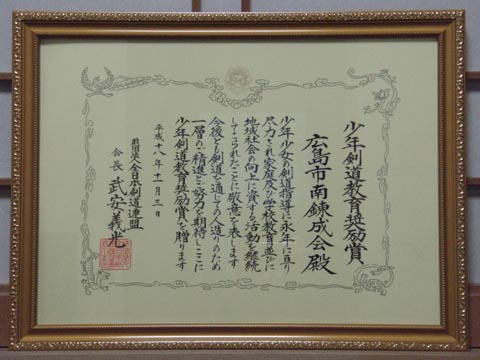 少年剣道教育奨励賞
広島市南錬成会殿
少年少女の剣道指導に永年に亘り
尽力され家庭及び学校教育並びに
地域社会の向上に資する活動を継続
してこられたことに敬意を表します
今後とも剣道を通しての人造りのため
一層のご精進とご努力を期待しここに
少年剣道教育奨励賞を贈ります
平成十八年十一月三日
財団法人全日本剣道連盟
会長 武安義光